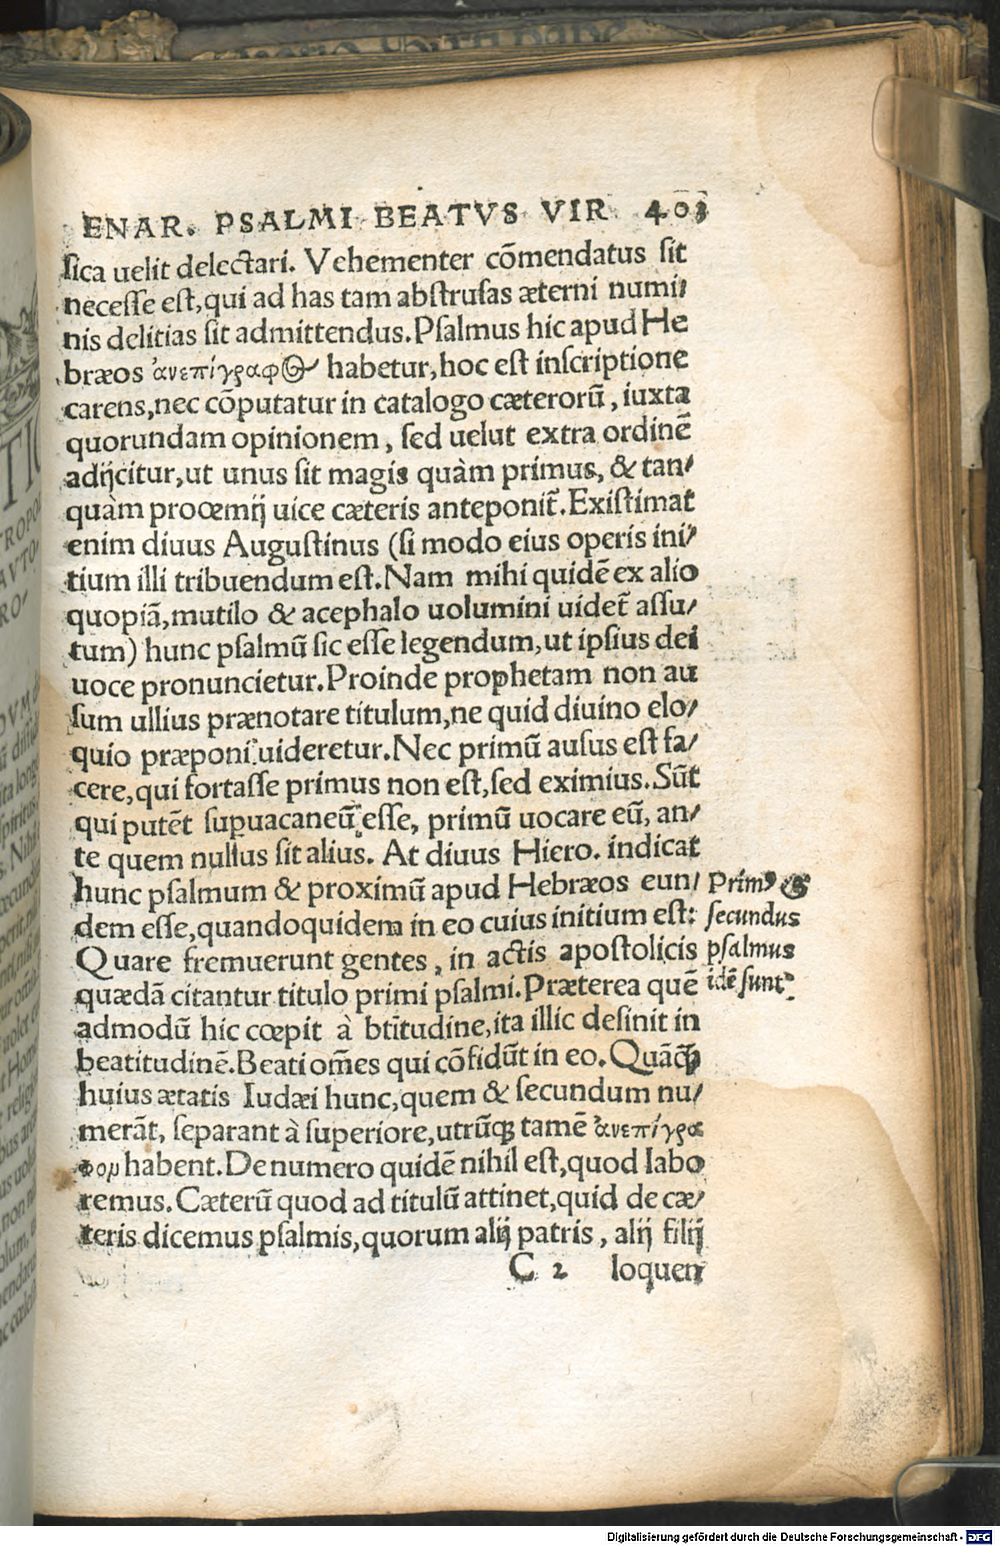 ENAR. PSALMI BEATVS VIR 403
sica uelit delectari. Vehementer cōmendatus sit
necesse est, qui ad has tam abstrusas æterni numi/
nis delitias sit admittendus. Psalmus hic apud He
bræos ἀνεπίγραφος habetur, hoc est inscriptione
carens, nec cōputatur in catalogo cæterorū, iuxta
quorundam opinionem, sed uelut extra ordinē
adijcitur, ut unus sit magis quàm primus, & tan/
quàm proœmij uice cæteris anteponit̃. Existimat
enim diuus Augustinus (si modo eius operis ini/
tium illi tribuendum est. Nam mihi quidē ex alio
quopiā, mutilo & acephalo uolumini uidet̃ assu/
tum) hunc psalmū sic esse legendum, ut ipsius dei
uoce pronuncietur. Proinde prophetam non au
sum ullius prænotare titulum, ne quid diuino elo/
quio præponi uideretur. Nec primū ausus est fa/
cere, qui fortasse primus non est, sed eximius. Sūt
qui putēt supuacaneū esse, primū uocare eū, an/
te quem nullus sit alius. At diuus Hiero. indicat
hunc psalmum & proximū apud Hebræos eun/
dem esse, quandoquidem in eo cuius initium est:
Quare fremuerunt gentes, in actis apostolicis
quædā citantur titulo primi psalmi. Præterea quē
admodū hic cœpit à bt̄itudine, ita illic desinit in
beatitudinē. Beati oēs qui cōfidūt in eo. Quāꝗ̃
huius ætatis Iudæi hunc, quem & secundum nu/
merāt, separant à superiore, utrūꝗ tamē ἀνεπίγρα
φον habent. De numero quidē nihil est, quod labo
remus. Cæterū quod ad titulū attinet, quid de cæ/
teris dicemus psalmis, quorum alij patris, alij filij
C 2 loquen
Primꝰ &
secundus
psalmus
idē sunt.
Digitalisierung gefördert durch die Deutsche Forschungsgemeinschaft - DFG